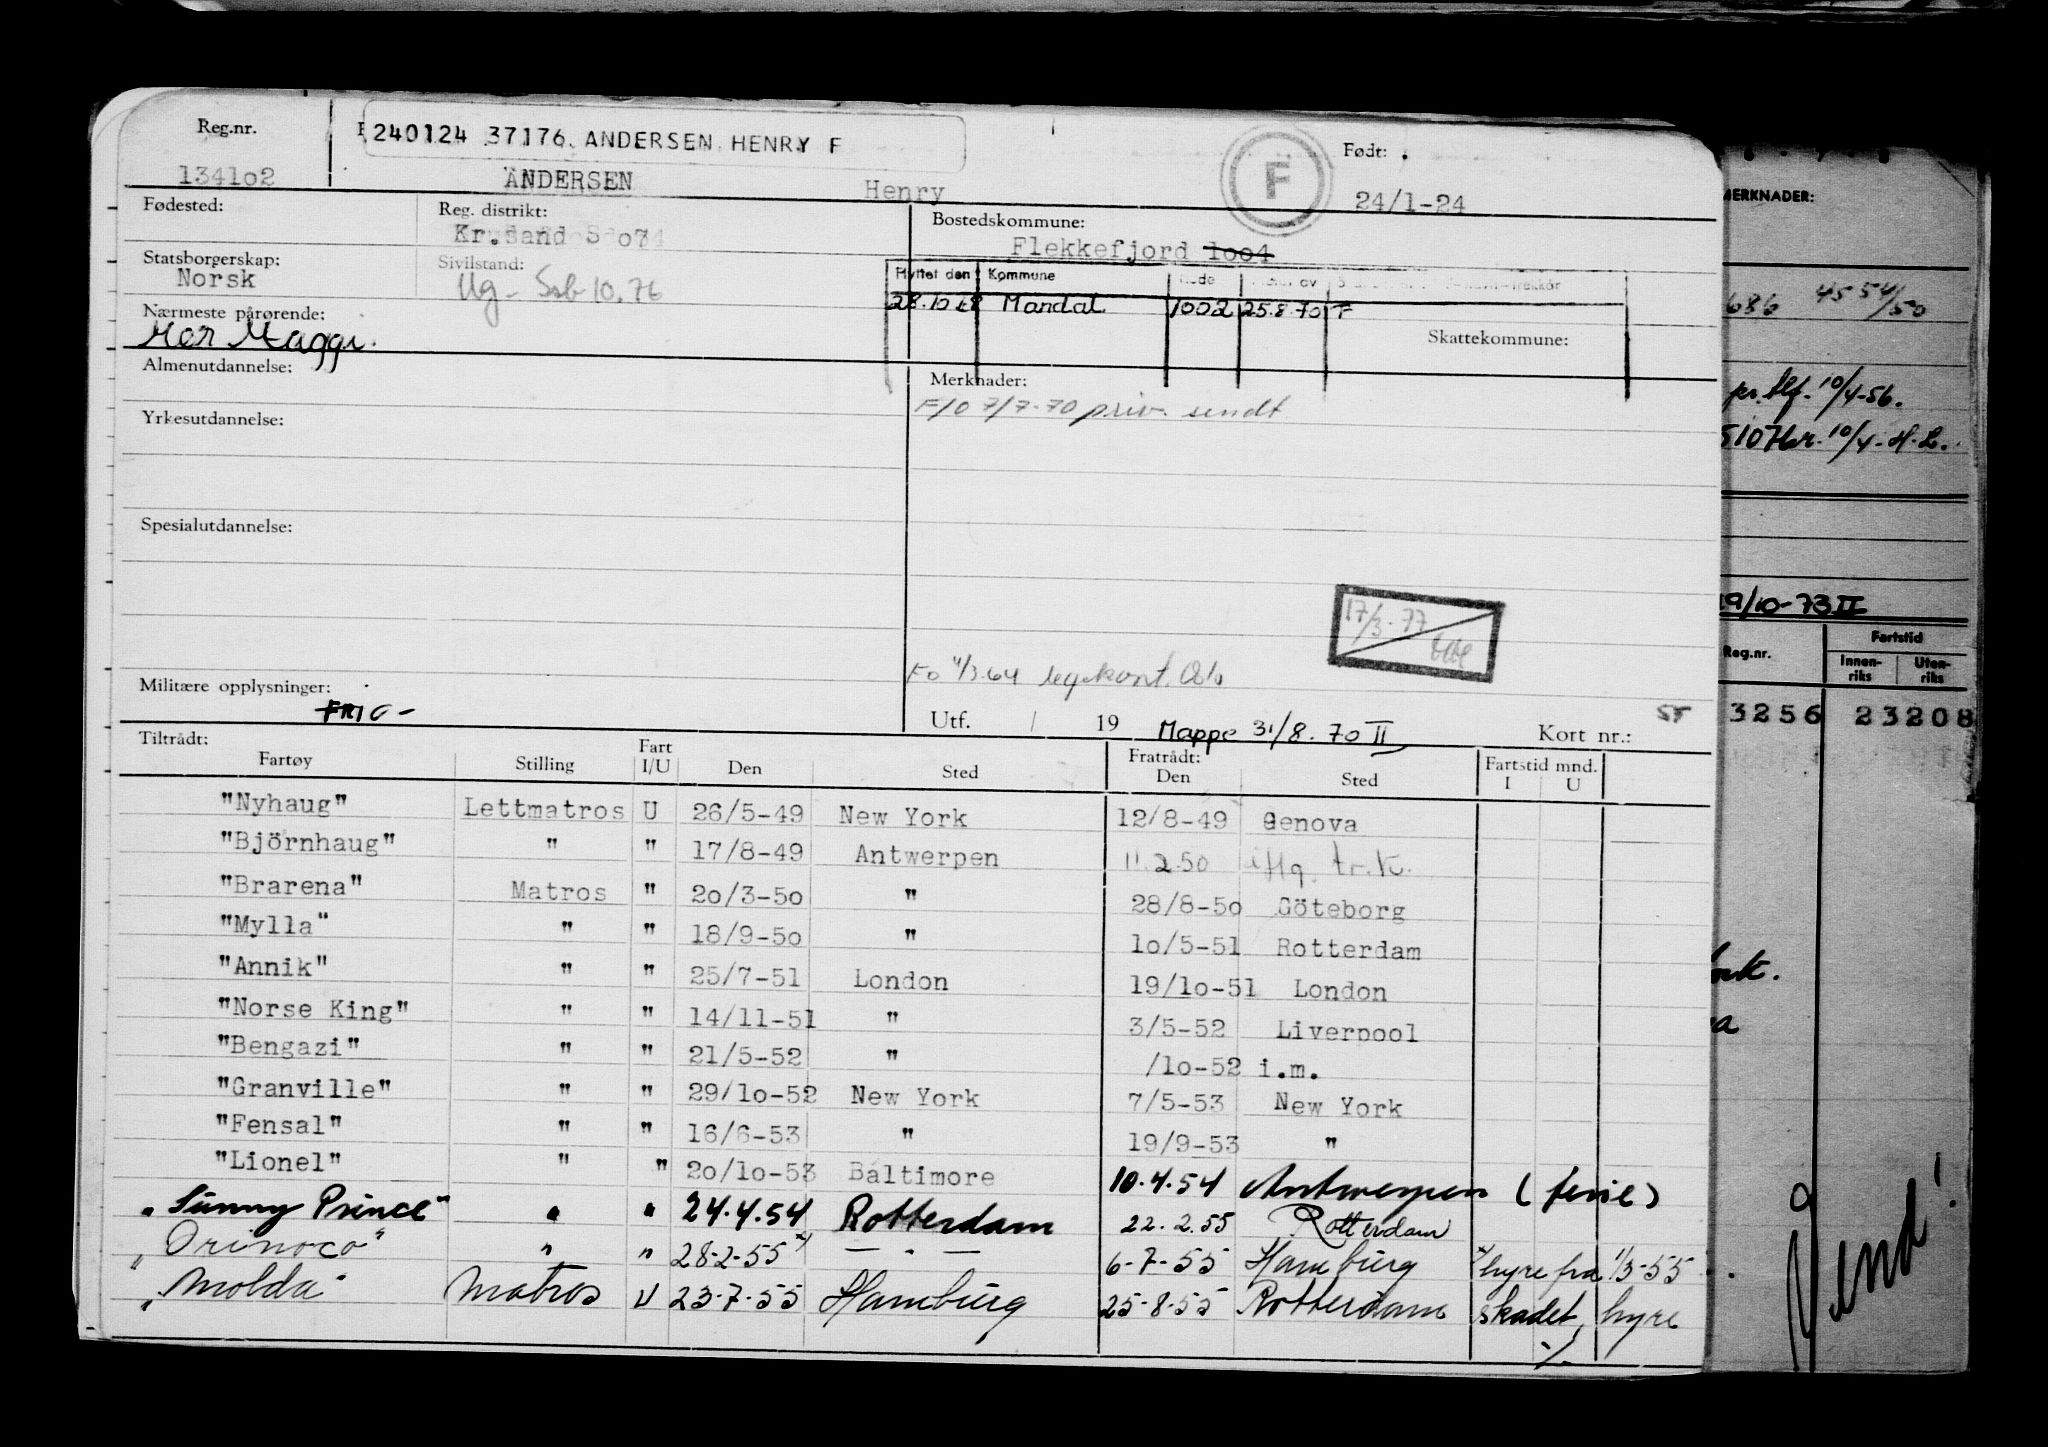 Reg.nr.
240124 37176. ANDERSEN HENRY F
F
Født:
134102
ANDERSEN
Henry
24/1-24
Fødested:
Reg. distrikt:
Kr.sand S 07
Bostedskommune:
Flekkefjord 1004
Statsborgerskap:
Norsk
Sivilstand:
Ug - Ssb 10.76
Flyttet den
Kommune
28.10.68 Mandal 1002 25.8.70 F
Nærmeste pårørende:
Mor Maggi.
Skattekommune:
Almenutdannelse:
Merknader:
F/O 7/7-70 priv. sendt
Yrkesutdannelse:
Spesialutdannelse:
17/3-77
Fo 4/3.64 legekont. Oslo
Militære opplysninger:
FRI
Utf. / 19
Mappe 31/8.70 II
Kort nr.:
55
Tiltrådt:
Fartøy Stilling Fart I/U Den Sted
Fratrådt: Den Sted
Fartstid mnd. I U
"Nyhaug" Lettmatros U 26/5-49 New York 12/8-49 Genova
"Björnhaug" " " 17/8-49 Antwerpen 11.2.50 iflg. tr.k.
"Brarena" Matros " 20/3-50 " 28/8-50 Göteborg
"Mylla" " " 18/9-50 " 10/5-51 Rotterdam
"Annik" " " 25/7-51 London 19/10-51 London
"Norse King" " " 14/11-51 " 3/5-52 Liverpool
"Bengazi" " " 21/5-52 " /10-52 i.m.
"Granville" " " 29/10-52 New York 7/5-53 New York
"Fensal" " " 16/6-53 " 19/9-53 "
"Lionel" " " 20/10-53 Baltimore 10.4.54 Antwerpen (ferie)
"Sunny Prince" " " 24.4.54 Rotterdam 22.2.55 Rotterdam
"Orinoco" " " 28-2-55 x) — " — 6-7-55 Hamburg x) hyre fra 1/3-55
"Molda" Matros U 23-7-55 Hamburg 25-8-55 Rotterdam skadet, hyre
./.
MERKNADER:
686 45 54/50
pr. tlf. 10/4-56.
5107 10/4-H.L.
19/10-73 II
Reg.nr.
Fartstid
Innen-
riks
Uten-
riks
3256 23208
Vend!